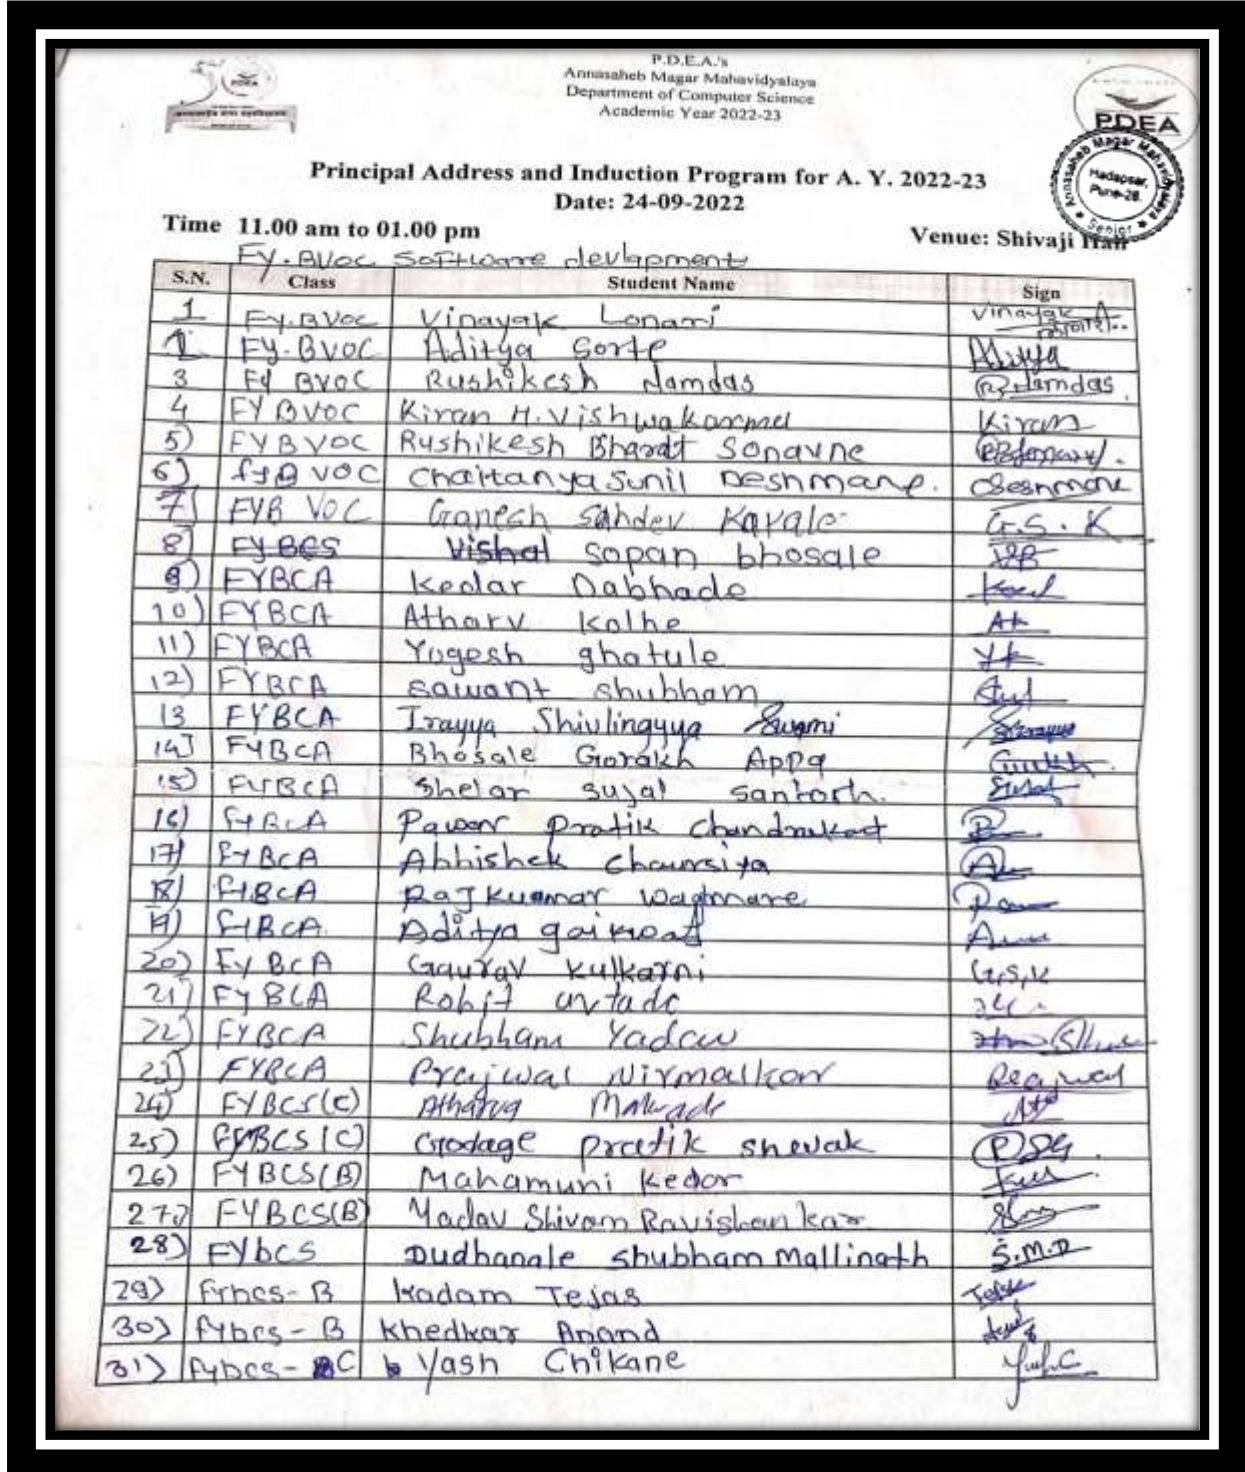 PDEA
P.D.E.A.'s
Annasaheb Magar Mahavidyalaya
Department of Computer Science
Academic Year 2022-23
PDEA
Annasaheb Magar Mahavidyalaya
Hadapsar,
Pune-28.
Senior
Principal Address and Induction Program for A. Y. 2022-23
Date: 24-09-2022
Time 11.00 am to 01.00 pm
Venue: Shivaji Hall
Fy.BVoc Software devlapment
S.N. Class Student Name Sign
1 Fy.BVoc Vinayak Lonari Vinayak
2 Fy.BVOC Aditya Sorte Aditya
3 Fy BVOC Rushikesh Namdas R.Namdas
4 FYBVOC Kiran H.Vishwakarma Kiran
5) FYBVOC Rushikesh Bharat Sonavne
6) fyB VOC Chaitanya Sunil Deshmane. CDeshmane
7) FYB VOC Ganesh Sahdev Kavale G.S.K
8) FYBCS Vishal Sopan bhosale
9) FYBCA Kedar Dabhade
10) FYBCA Atharv Kolhe AK
11) FYBCA Yogesh ghatule
12) FYBCA sawant shubham
13 FYBCA Irayya Shivlingyya Swami
14) FYBCA Bhosale Gorakh Appa
15) FYBCA Shelar Sujal Santosh.
16) FYBCA Pawar Pratik
17) FYBCA Abhishek Chaursiya
18) FYBCA RajKuamar Wagmare
19) FYBCA Aditya gaikwad
20) Fy BCA Gaurav Kulkarni G.S.K
21) Fy BCA Rohit
22) FYBCA Shubham Yadav
23) FYBCA Prajwal Nirmalkar Prajwal
24) FYBCS(C) Atharva
25) FYBCS(C) Godage Pratik shevak PSG
26) FYBCS(B) Mahamuni Kedar
27) FYBCS(B) Yadav Shivam Ravishankar
28) FYbCS Dudhanale Shubham Mallinath S.M.D
29) Fybcs-B Kadam Tejas
30) fybcs-B Khedkar Anand
31) fybcs-C Yash Chikane